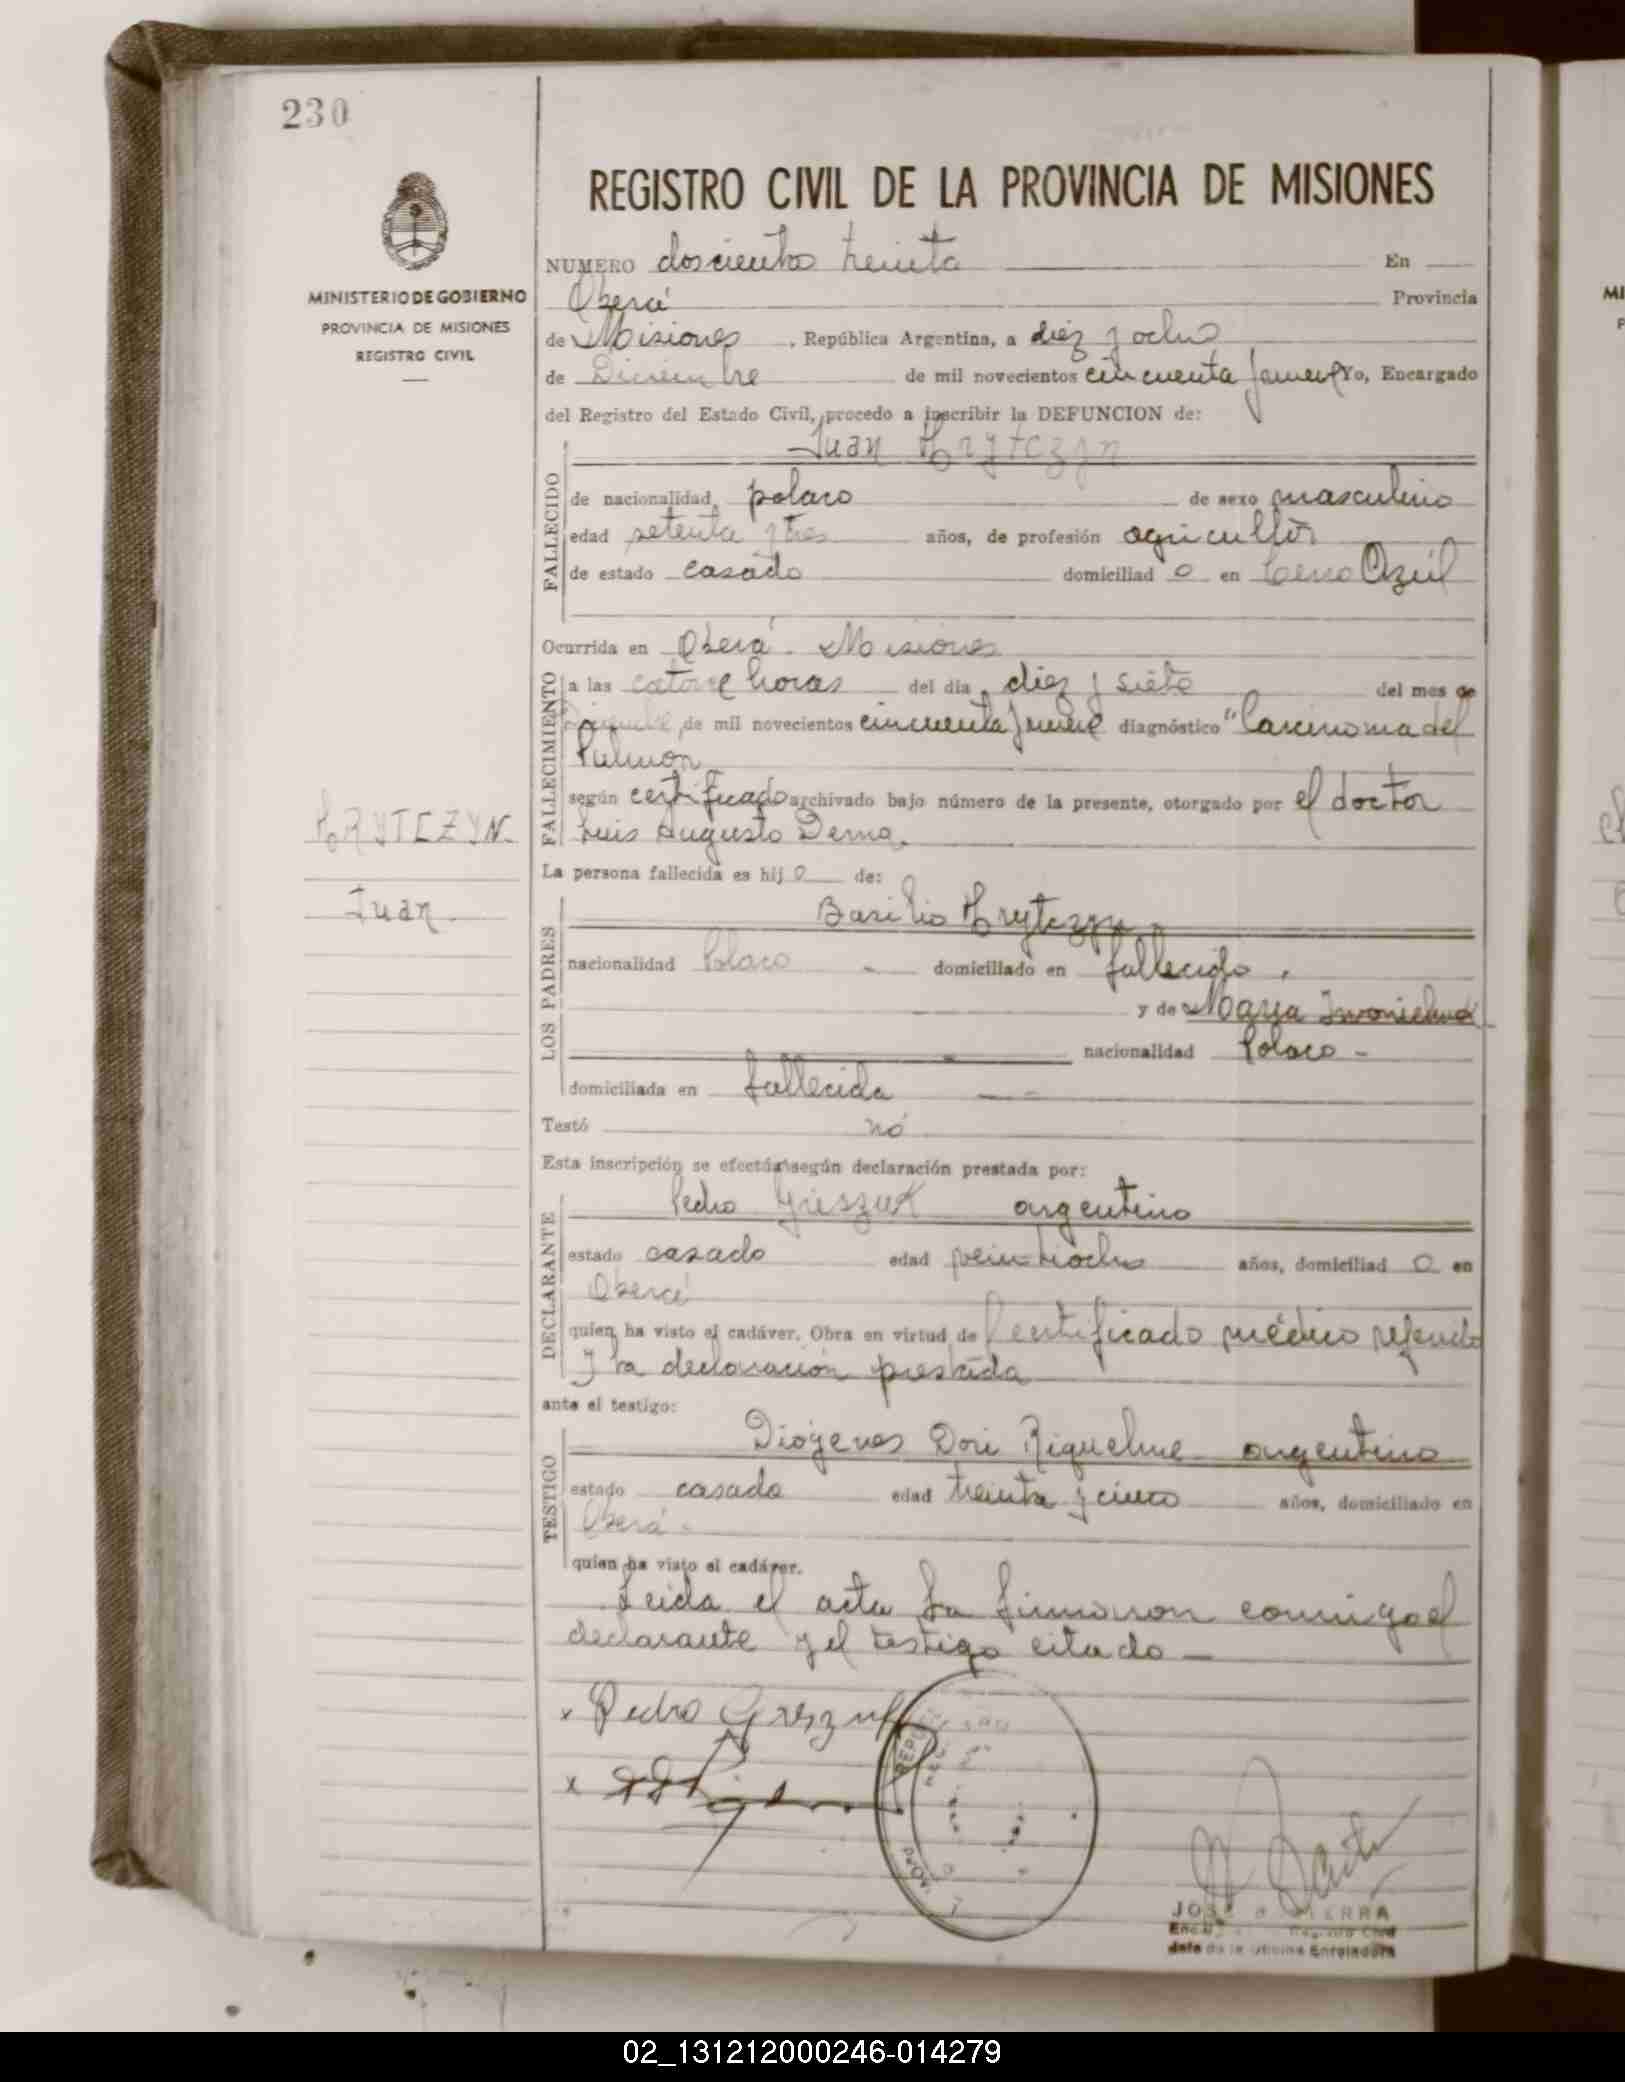 230
REGISTRO CIVIL DE LA PROVINCIA DE MISIONES
MINISTERIO DE GOBIERNO
PROVINCIA DE MISIONES
REGISTRO CIVIL
NUMERO doscientos treinta En
Oberá Provincia
de Misiones, República Argentina, a diez y ocho
de Diciembre de mil novecientos cincuenta y nueve Yo, Encargado
del Registro del Estado Civil, procedo a inscribir la DEFUNCION de:
Juan Hrytczyn
FALLECIDO
de nacionalidad polaco de sexo masculino
edad setenta y tres años, de profesión agricultor
de estado casado domiciliad o en Cerro Azúl
Ocurrida en Oberá - Misiones
FALLECIMIENTO
a las catorce horas del dia diez y siete del mes de
Diciembre de mil novecientos cincuenta y nueve diagnóstico "Carcinoma del
Pulmón
según certificado archivado bajo número de la presente, otorgado por el doctor
Luis Augusto Derna.
HRYTCZYN.
Juan
La persona fallecida es hij o de:
LOS PADRES
Basilio Hrytczyn
nacionalidad Polaco - domiciliado en fallecido.
y de Maria
nacionalidad Polaco -
domiciliada en fallecida
Testó nó
Esta inscripción se efectúa según declaración prestada por:
DECLARANTE
Pedro Greszuk argentino
estado casado edad veintiocho años, domiciliad o en
Oberá
quien ha visto el cadáver. Obra en virtud de Certificado médico referido
y la declaración prestada
ante el testigo:
TESTIGO
Diógenes Dori Riquelme argentino
estado casado edad treinta y cinco años, domiciliado en
Oberá -
quien ha visto el cadáver.
Leida el acta la firmaron conmigo el
declarante y el testigo citado -
x Pedro Greszuk
x
JOSE
Registro Civil
Jefe de la Oficina Enroladora
02_131212000246-014279